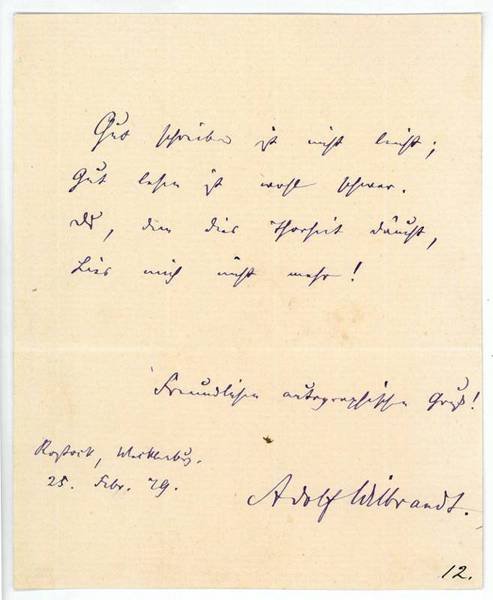 Gut schreiben ist nicht leicht;
Gut lesen ist wohl schwer.
Du, dem dies Thorheit däucht,
Lies mich nicht mehr!
Freundlichen autographischen Gruß!
Rostock, Mecklenburg.
25. Febr. 79.
Adolf Wilbrandt.
12.